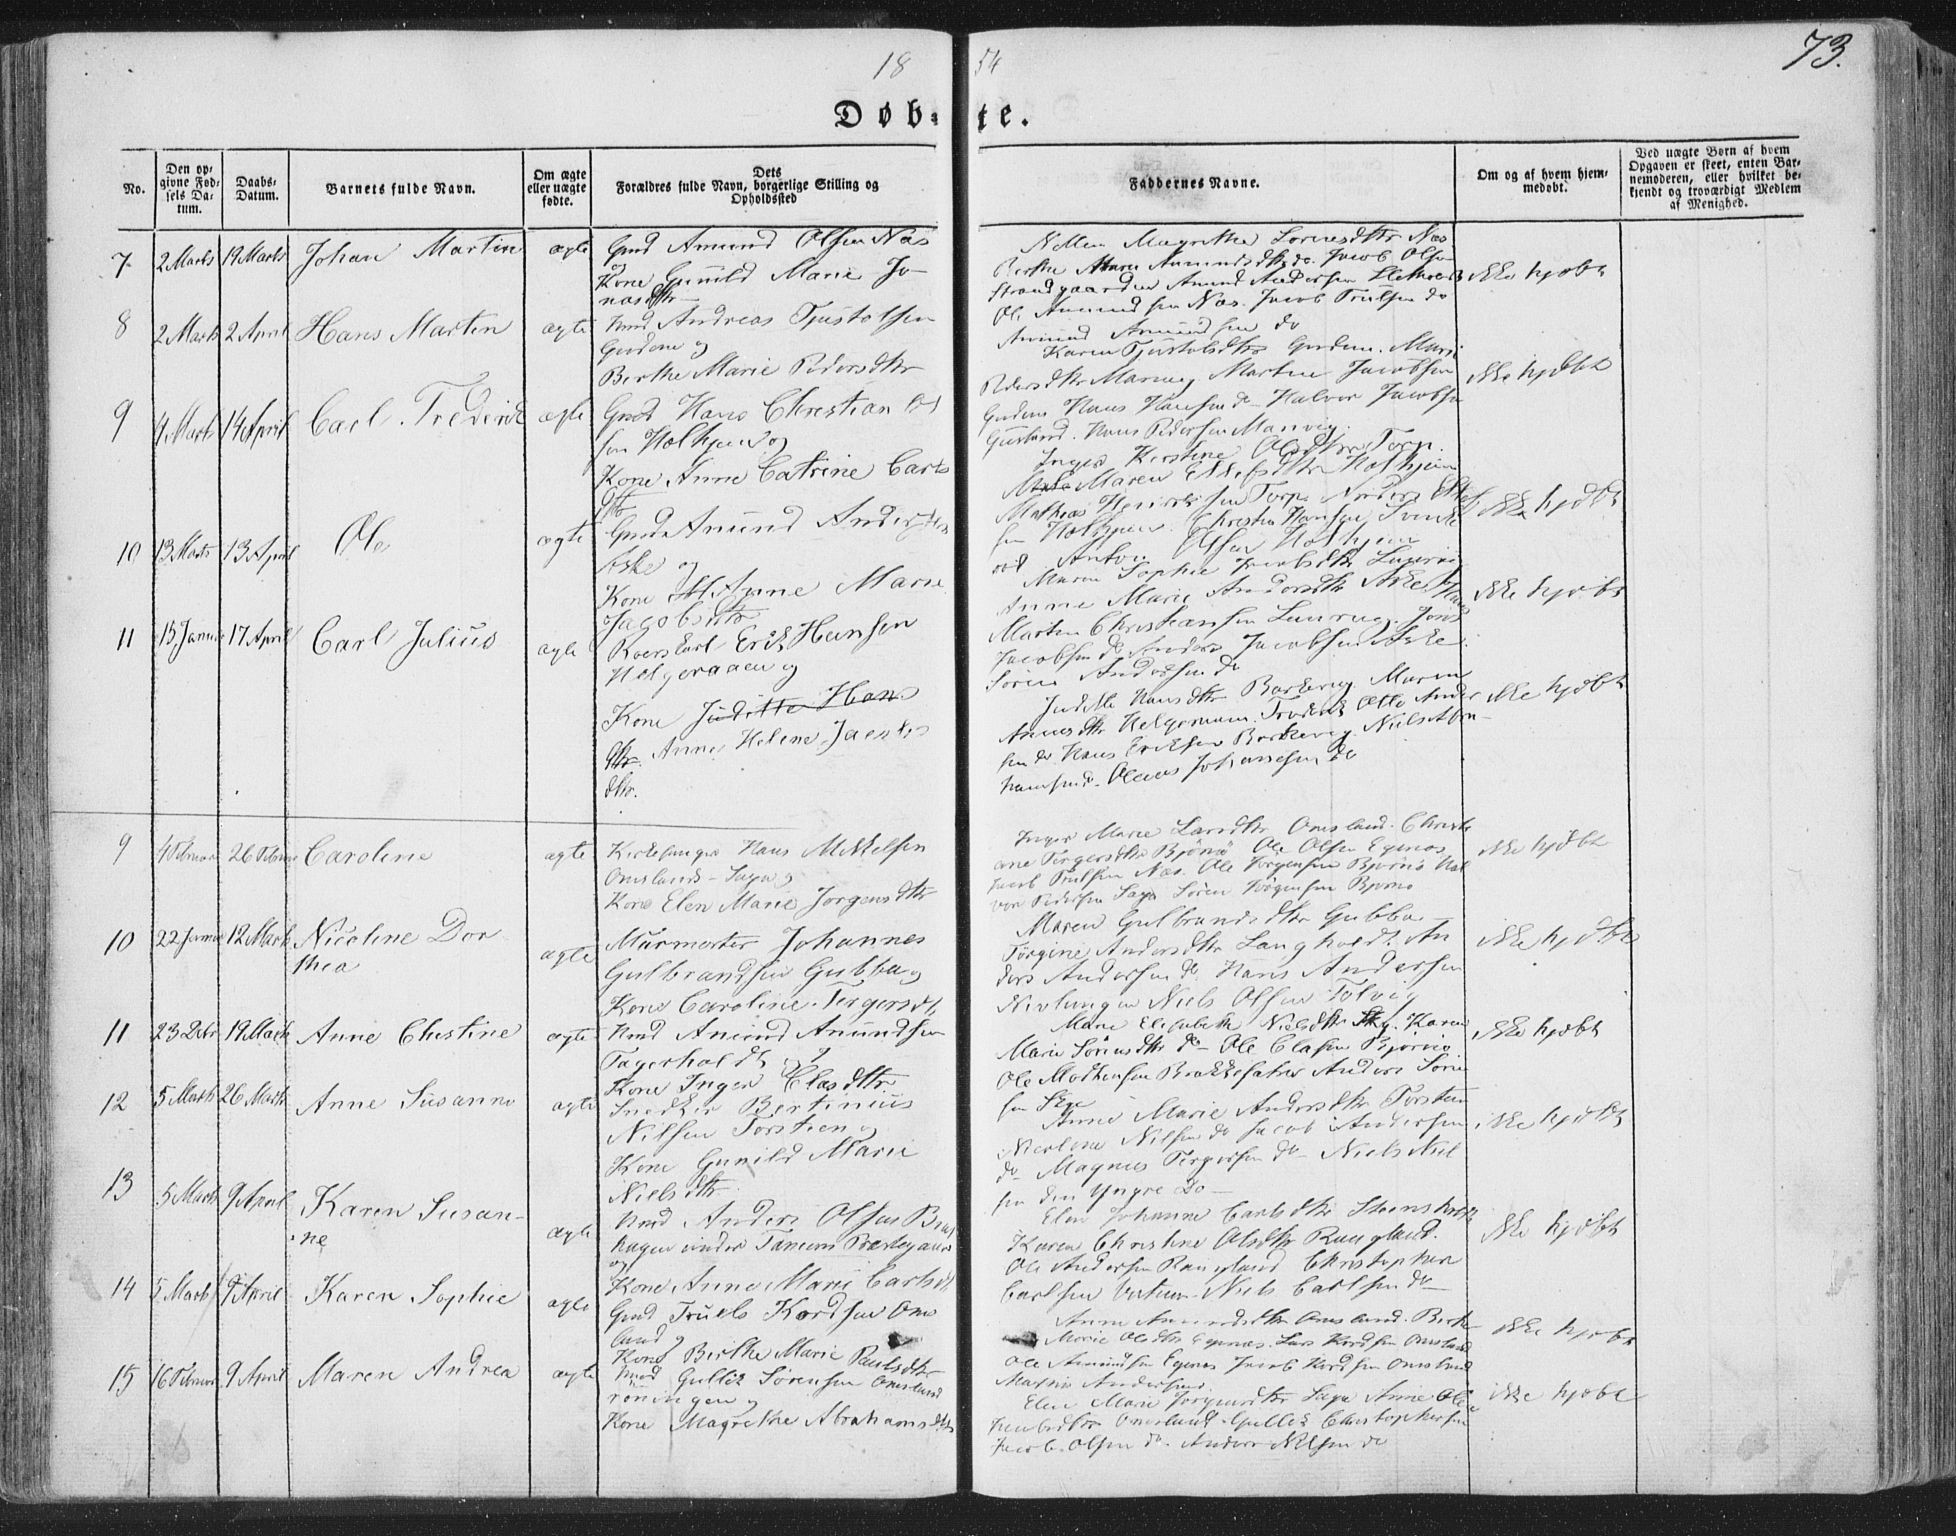 18 54
73.
Døb- te.
No.
Den op-
givne Fød-
sels Da-
tum.
Daabs-
Datum.
Barnets fulde Navn.
Om ægte
eller uægte
fødte.
Dets
Forældres fulde Navn, borgerlige Stilling og
Opholdssted
Faddernes Navne.
Om og af hvem hjem-
medøbt.
Ved uægte Børn af hvem
Opgaven er skeet, enten Bar-
nemoderen, eller hvilket be-
kjendt og troværdigt Medlem
af Menighed.
7 2 Marts 19 Marts Johan Martin ægte Gmd Amund Olsen Næs
og
Kone Gunild Marie Jo-
nasdttr
Jacob Olsen
Amund Andersen
Ole Amundsen Næs. Jacob Truelsen do
Amund Amundsen do
ikke hjdbt
8 2 Marts 2 April Hans Martin ægte Hmd Andreas Tjøstolsen
Gusdene og
Berthe Marie Pedersdttr
Karen Tjøstolsdttr Gusdene. Marie
Pedersdttr Manvig Martin Jacobsen
Gusdene Hans Hansen do Halvor Jacobsen
Gusland. Hans Pedersen Manvig.
ikke hjdbt
9 4 Marts 14 April Carl Frederik ægte Gmd Hans Christian Ol
sen Holhjem og
Kone Anne Catrine Carls
dttr
Inger Kirstine Olsdttr Torp.
Maren Ellefsdttr Holhjem
Mathias Henriksen Torp. Anders Ellef
sen Holhjem. Christen Hansen
Anton Olsen Holhjem
ikke hjdbt
10 13 Marts 13 April Ole ægte Gmd Amund Andersen
Aske og
Kone Anne Marie
Jacobsdttr
Maren Sophie Jacobsdttr Laurvig
Anne Marie Andersdttr Aske Hans
Martin Christiansen Laurvig. Jens
Jacobsen do Anders Jacobsen Aske.
Søren Andersen do
ikke hjdbt
11 15 Januar 17 April Carl Julius ægte Erik Hansen
Helgeraaen og
Kone Juditte Hans
dttr. Anne Helene Jacobs
dttr.
Juditte Hansdttr Barkevig Maren
Annesdttr Helgeraaen. Frederik Otto Ander
sen do Hans Eriksen Barkevig Niels Abra-
hamsen do. Oleaus Johannesen do
ikke hjdbt
9 4 Februar 26 Februar Caroline ægte Kirkesanger Hans Mikkelsen
Omslands-Saga og
Kone Elen Marie Jørgensdttr
Inger Marie Larsdttr Omsland. Christi
ane Tørgersdttr Bjønnø Ole Olsen Egenæs
Jacob Truelsen Næs. Ole Jørgensen Bjønnø Hal
vor Pedersen Saga Søren Jørgensen Bjønnø
ikke hjdbt
10 22 Januar 12 Marts Nicoline Dor
thea
ægte Murmester Johannes
Gulbrandsen Gubba og
Kone Caroline Tørgersdtr
Maren Gulbrandsdttr Gubba
Tørgine Andersdttr Langholdt An
ders Andersen do Hans Andersen
Nevlungen Niels Olsen Tolvig
ikke hjdbt
11 23 Debr 19 Marts Anne Christine ægte Hmd Amund Amundsen
Fagerholdt og
Kone Inger Clasdttr
Marie Elisabeth Nielsdttr Sky. Karen
Marie Sørensdttr do Ole Clasen Bjørnø
Ole Mathæsen Anders Søren
sen Skye
ikke hjdbt
12 5 Marts 26 Marts Anne Susanne ægte Snedker Bertinius
Nilsen Torstien og
Kone Gunild Marie
Nielsdttr
Anne Marie Andersdttr Torstien
Nicoline Nilsen do Jacob Andersen
do Magnus Tørgersen do Niels Niel
sen den yngre do
ikke hjdbt
13 5 Marts 9 April Karen Susan-
ne
ægte Hmd Anders Olsen
hagen under Tanum Præstegaard
og
Kone Anne Marie Carlsdtr
Elen Johanne Carlsdttr Steensholt
Karen Christine Olsdttr Rangland.
Ole Andersen Rangland Christopher
Carlsen Niels Carlsen do
ikke hjdbt
14 5 Marts 9 April Karen Sophie ægte Gmd Truels Kordsen Oms
land og
Kone Birthe Marie Paulsdttr
Anne Amundsdttr Omsland. Birthe
Marie Olsdttr Egenæs. Lars Kordsen Omsland
Ole Amundsen Egenæs Jacob Kordsen Omsland
Martin Andersen
ikke hjdbt
15 16 Februar 9 April Maren Andrea ægte Hmd Gullik Sørensen Omsland
rønningen og
Kone Magrethe Abrahamsdttr
Elen Marie Jørgensdttr Saga Anne Ole
Jacobsdttr Omsland. Gullik Christophersen
Jacob Olsen do. Anders Nilsen do
ikke hjdbt